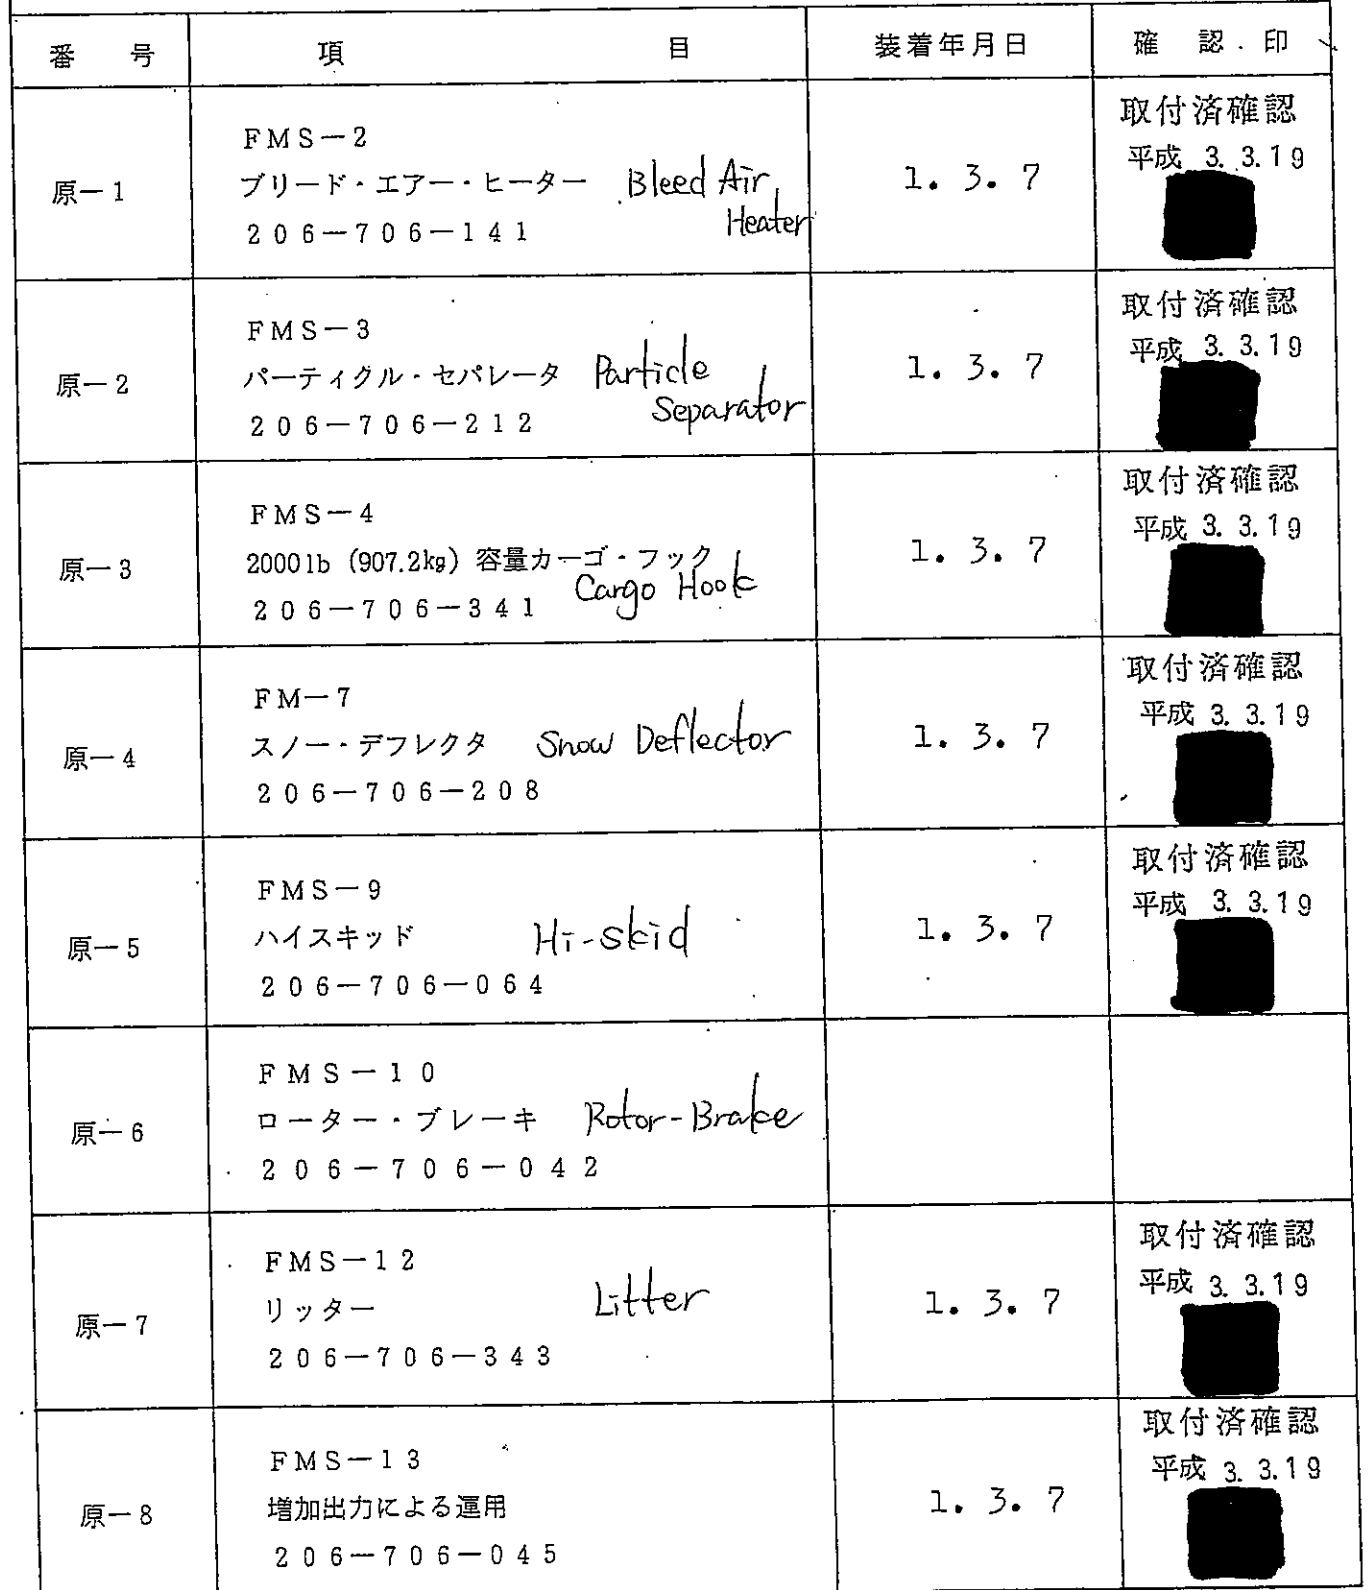 番 号 項 目 装着年月日 確 認 印
原－1
FMS－2
ブリード・エアー・ヒーター Bleed Air
Heater
206－706－141
1. 3. 7
取付済確認
平成 3. 3.19
原－2
FMS－3
パーティグル・セパレータ Particle
Separator
206－706－212
1. 3. 7
取付済確認
平成 3. 3.19
原－3
FMS－4
2000lb (907.2kg) 容量カーゴ・フック
Cargo Hook
206－706－341
1. 3. 7
取付済確認
平成 3. 3.19
原－4
FM－7
スノー・デフレクタ Snow Deflector
206－706－208
1. 3. 7
取付済確認
平成 3. 3.19
原－5
FMS－9
ハイスキッド Hi-skid
206－706－064
1. 3. 7
取付済確認
平成 3. 3.19
原－6
FMS－10
ローター・ブレーキ Rotor-Brake
206－706－042
原－7
FMS－12
リッター Litter
206－706－343
1. 3. 7
取付済確認
平成 3. 3.19
原－8
FMS－13
増加出力による運用
206－706－045
1. 3. 7
取付済確認
平成 3. 3.19